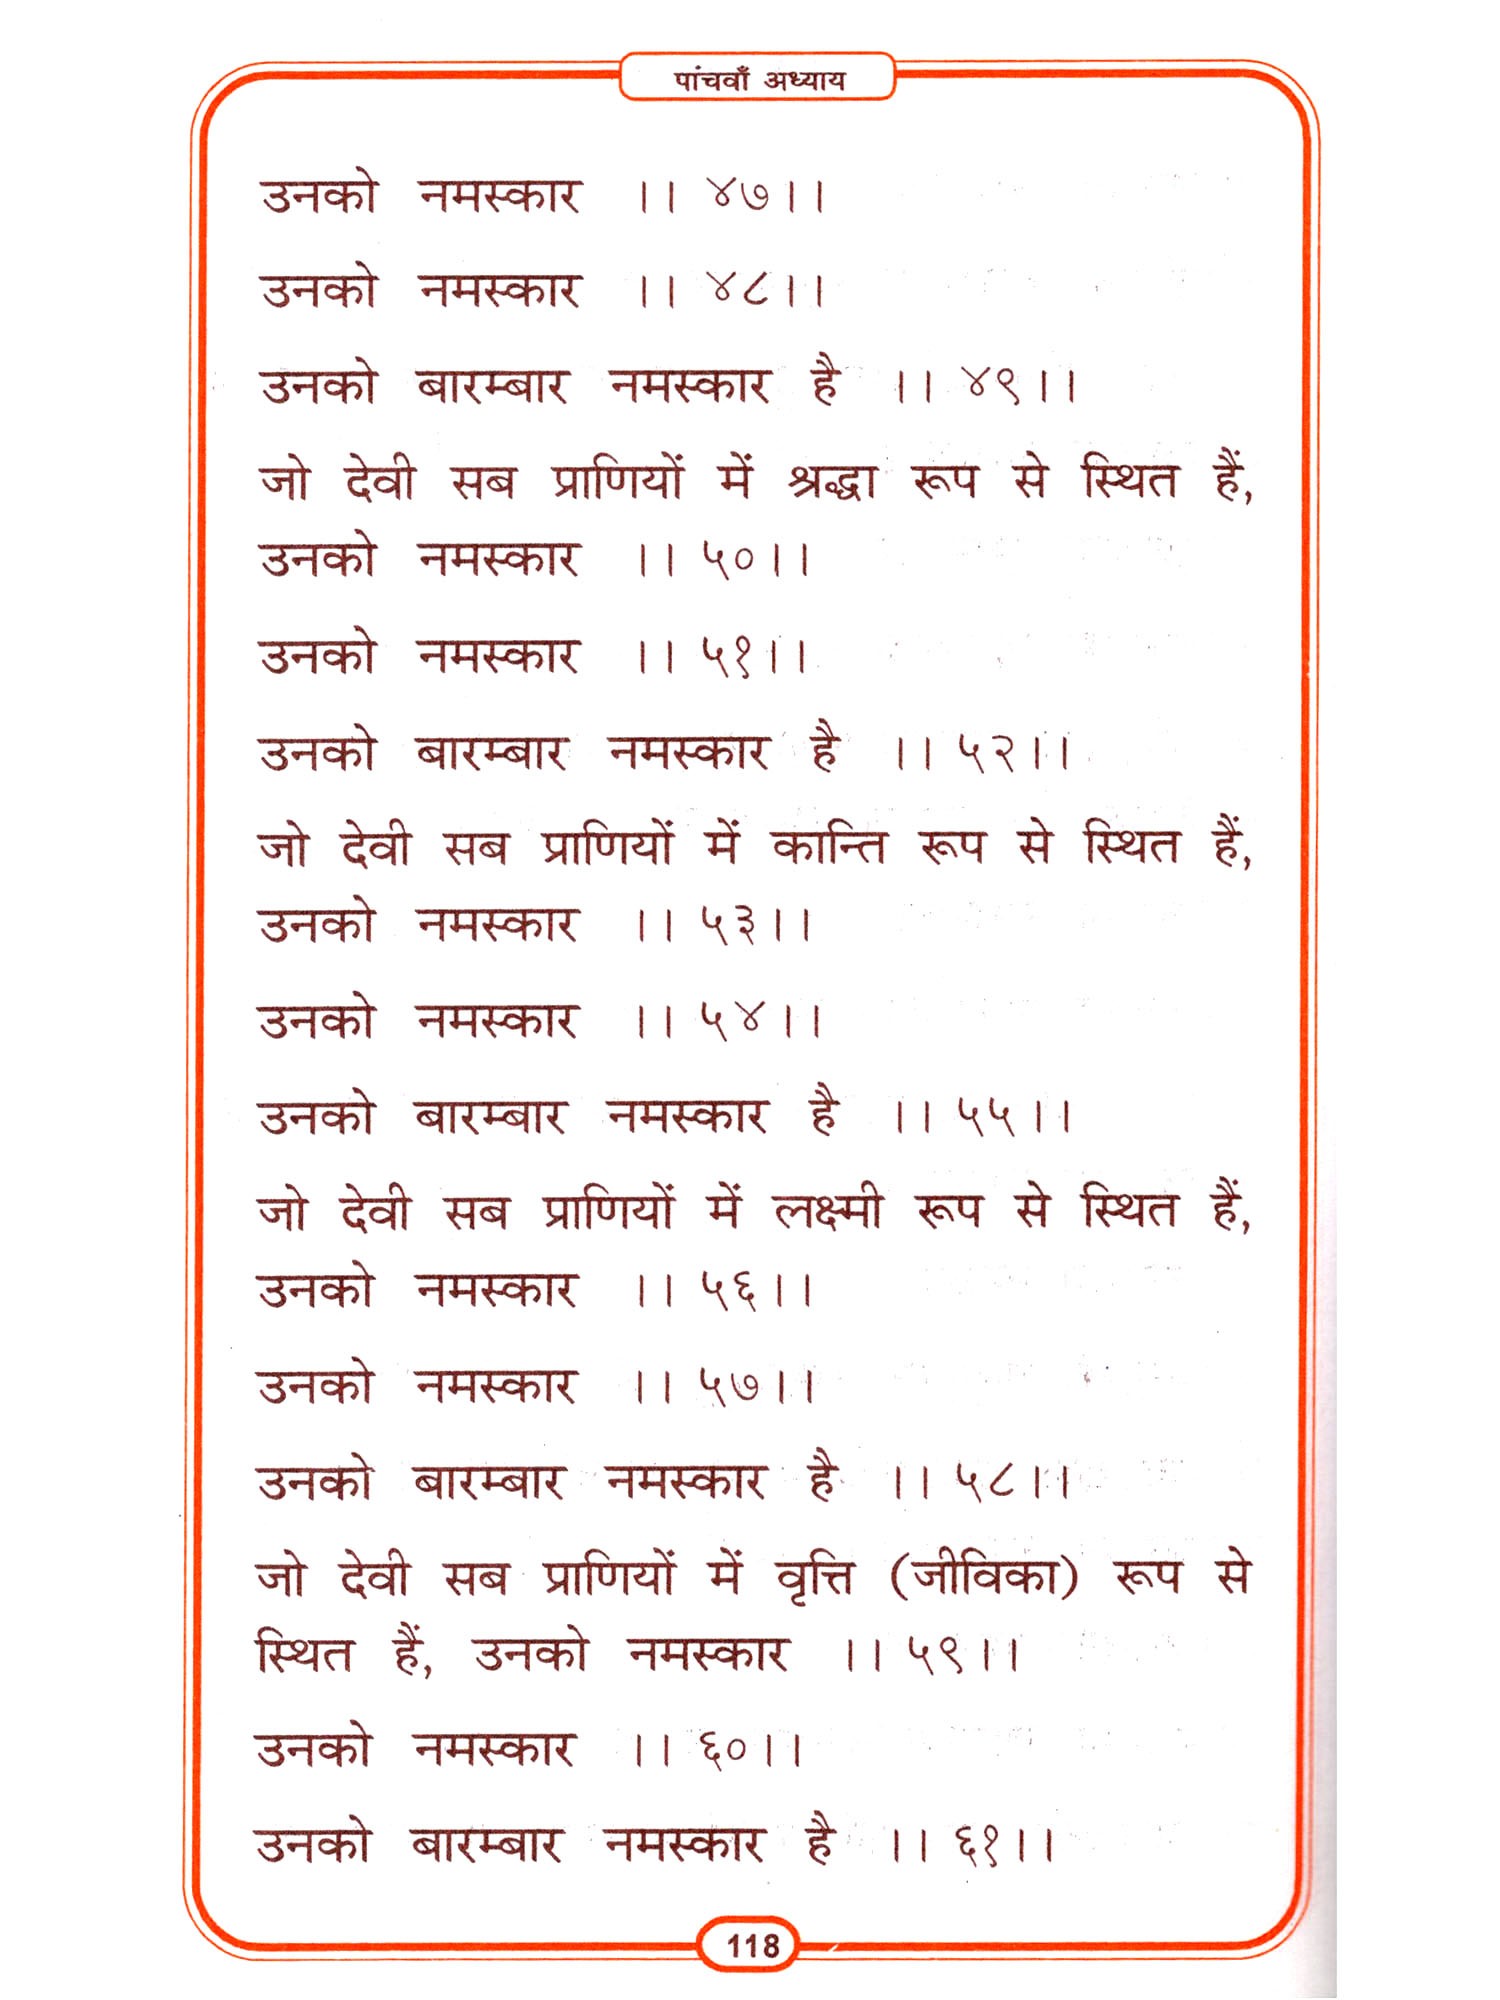 पांचवाँ अध्याय
उनको नमस्कार ।। ४७।।
उनको नमस्कार ।। ४८।।
उनको बारम्बार नमस्कार है ।। ४९।।
जो देवी सब प्राणियों में श्रद्धा रूप से स्थित हैं,
उनको नमस्कार ।। ५०।।
उनको नमस्कार ।। ५१।।
उनको बारम्बार नमस्कार है ।। ५२।।
जो देवी सब प्राणियों में कान्ति रूप से स्थित हैं,
उनको नमस्कार ।। ५३।।
उनको नमस्कार ।। ५४।।
उनको बारम्बार नमस्कार है ।। ५५।।
जो देवी सब प्राणियों में लक्ष्मी रूप से स्थित हैं,
उनको नमस्कार ।। ५६।।
उनको नमस्कार ।। ५७।।
उनको बारम्बार नमस्कार है ।। ५८।।
जो देवी सब प्राणियों में वृत्ति (जीविका) रूप से
स्थित हैं, उनको नमस्कार ।। ५९।।
उनको नमस्कार ।। ६०।।
उनको बारम्बार नमस्कार है ।। ६१।।
118